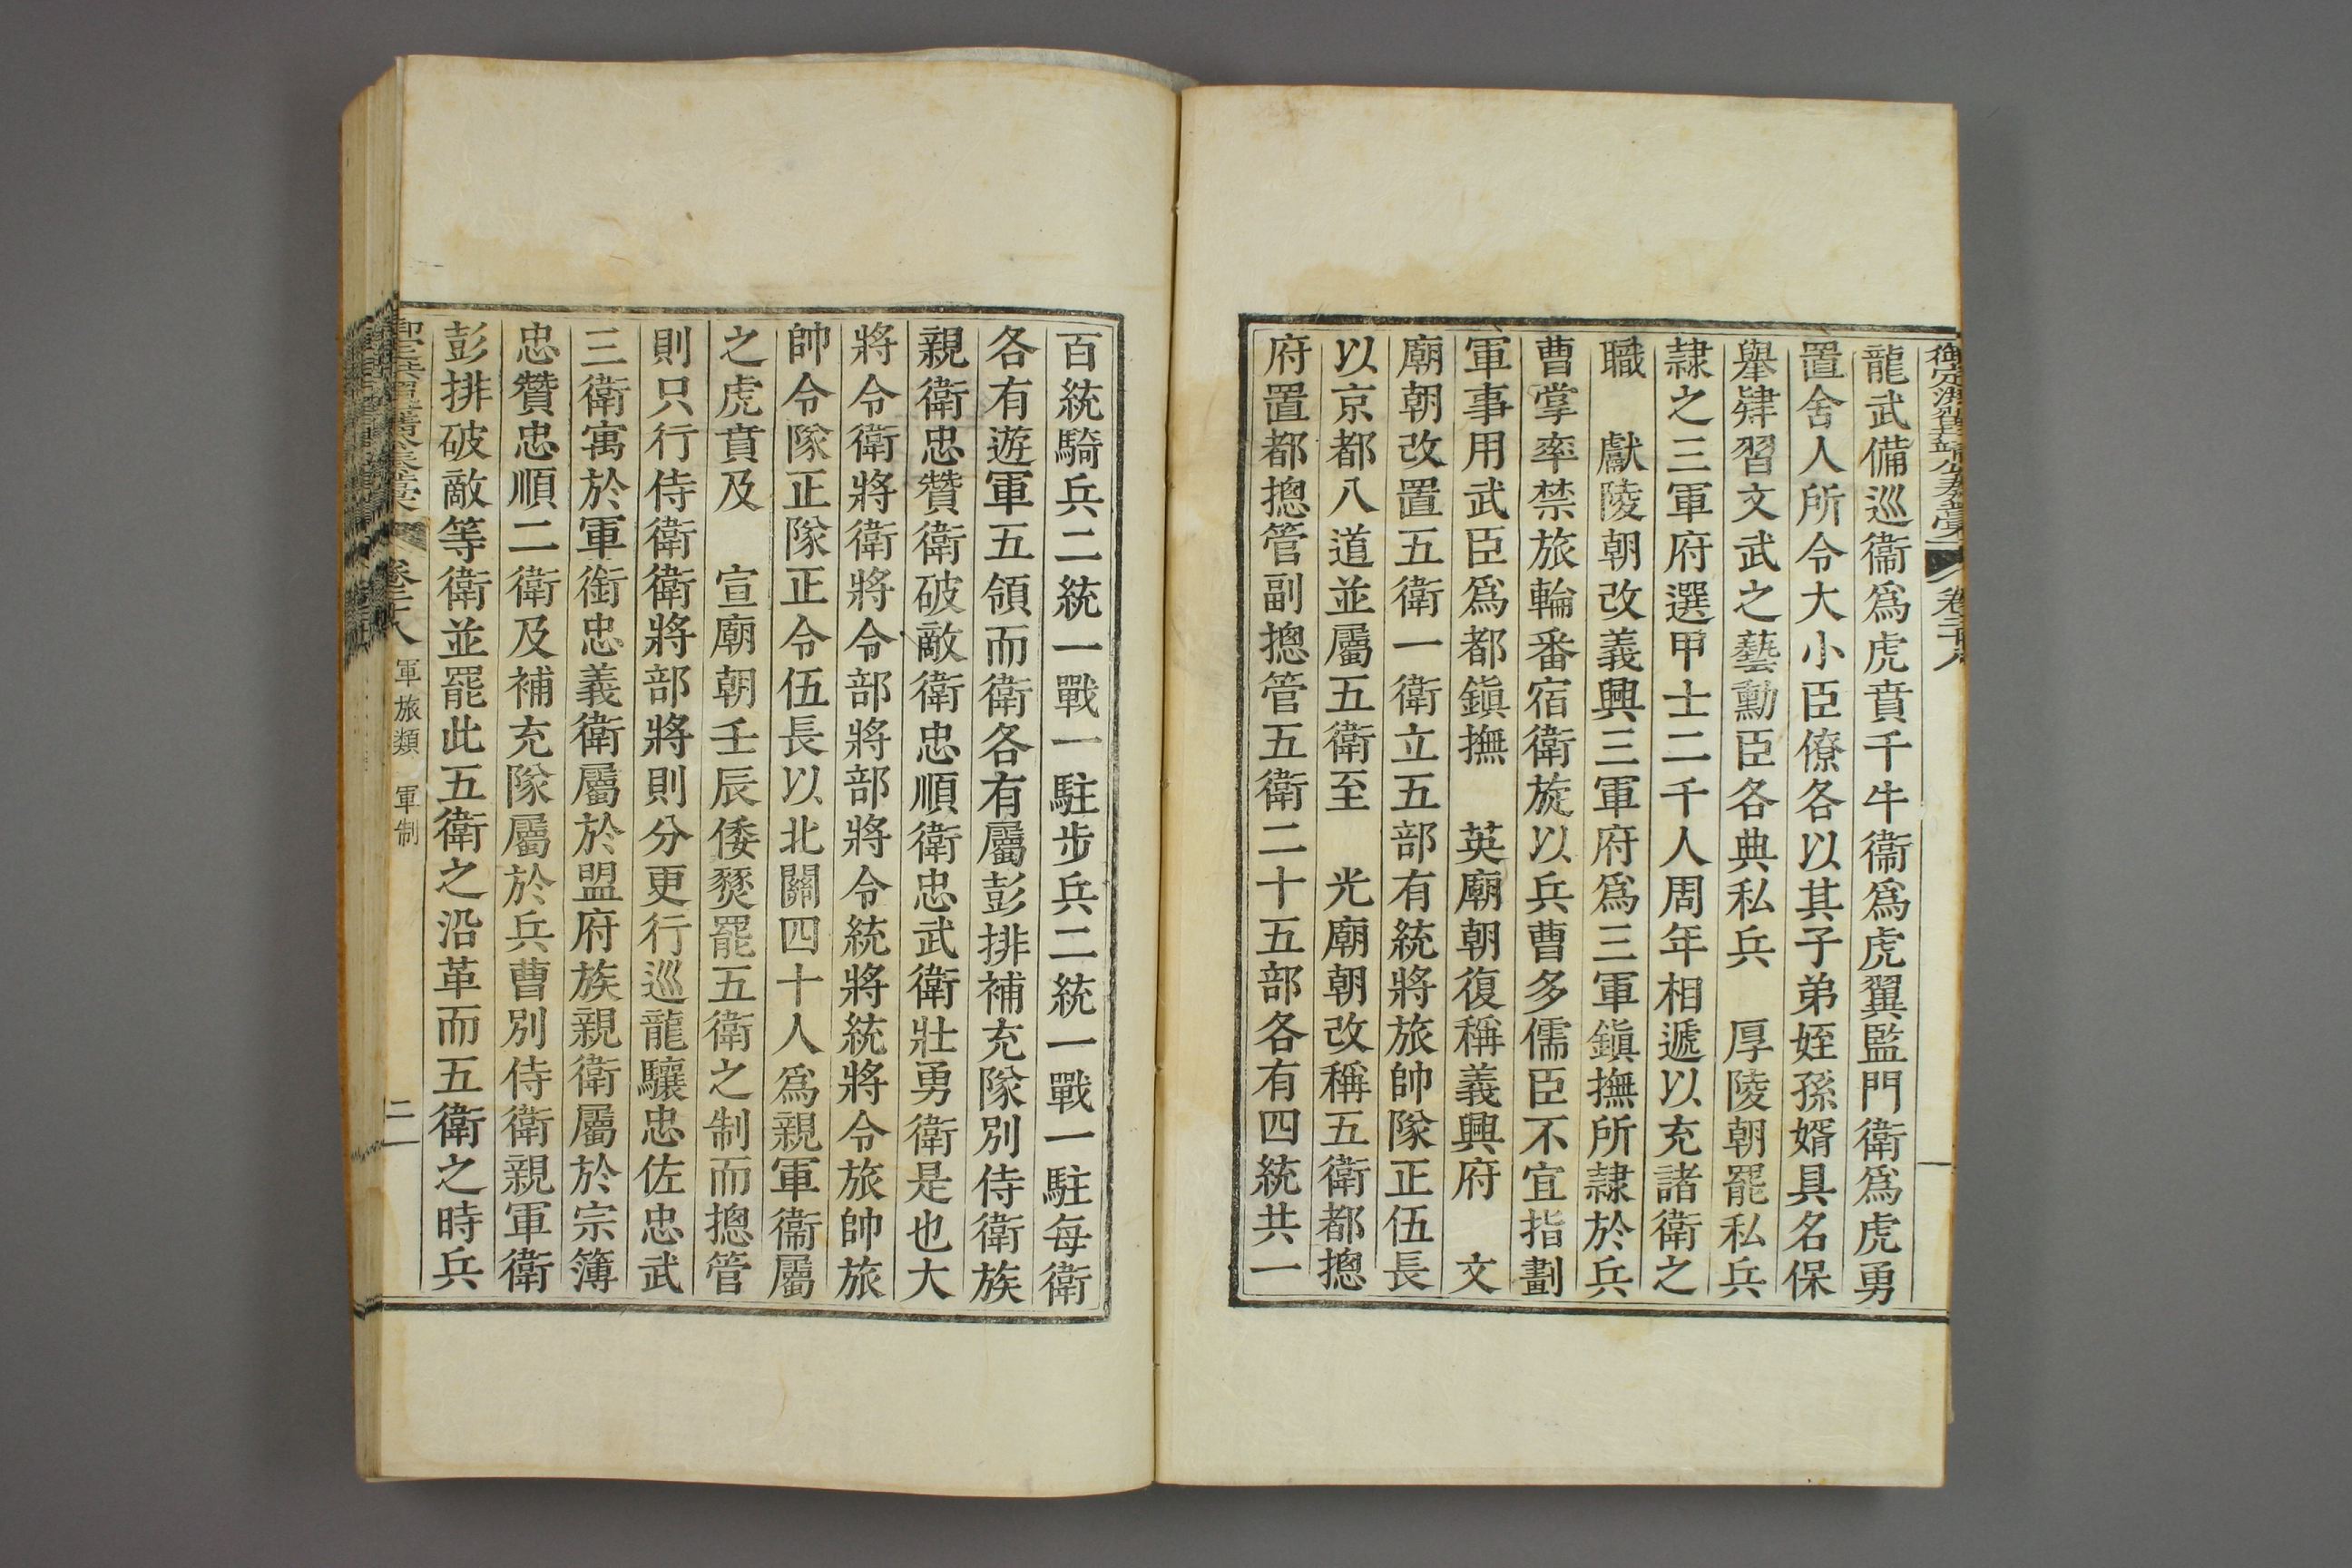 龍武備巡衞爲虎賁千牛衞爲虎翼監門衛爲虎勇
置舍人所令大小臣僚各以其子弟姪孫婿具名保
舉肄習文武之藝勳臣各典私兵　厚陵朝罷私兵
隷之三軍府選甲士二千人周年相遞以充諸衛之
職　獻陵朝改義興三軍府爲三軍鎭撫所隷於兵
曹掌率禁旅輪番宿衛旋以兵曹多儒臣不宜指劃
軍事用武臣爲都鎭撫　英廟朝復稱義興府　文
廟朝改置五衛一衛立五部有統將旅帥隊正伍長
以京都八道並屬五衛至　光廟朝改稱五衛都摠
府置都摠管副摠管五衛二十五部各有四統共一
百統騎兵二統一戰一駐步兵二統一戰一駐每衛
各有遊軍五領而衛各有屬彭排補充隊別侍衛族
親衛忠贊衛破敵衛忠順衛忠武衛壯勇衛是也大
將令衛將衛將令部將部將令統將統將令旅帥旅
帥令隊正隊正令伍長以北關四十人爲親軍衞屬
之虎賁及　宣廟朝壬辰倭燹罷五衛之制而摠管
則只行侍衛衛將部將則分更行巡龍驤忠佐忠武
三衛寓於軍銜忠義衛屬於盟府族親衛屬於宗簿
忠贊忠順二衛及補充隊屬於兵曹別侍衛親軍衛
彭排破敵等衛並罷此五衛之沿革而五衛之時兵
軍旅類 軍制
二